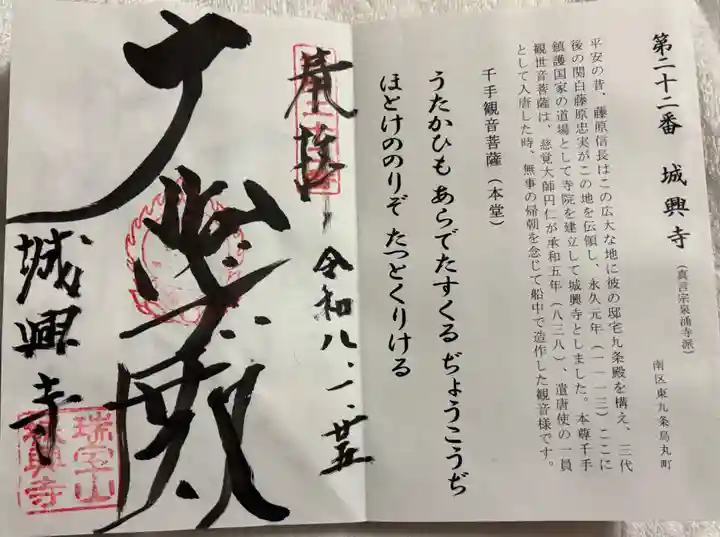 第二十二番　城興寺（真言宗泉涌寺派）
南区東九条烏丸町
平安の昔、藤原信長はこの広大な地に彼の邸宅九条殿を構え、三代
後の関白藤原忠実がこの地を伝領し、永久元年（一一一三）ここに
鎮護国家の道場として寺院を建立して城興寺としました。本尊千手
観世音菩薩は、慈覚大師円仁が承和五年（八三八）、遣唐使の一員
として入唐した時、無事の帰朝を念じて船中で造作した観音様です。
千手観音菩薩（本堂）
うたかひも あらでたすくる ぢょうこうぢ
ほとけののりぞ たつとくりける
奉拝
令和八、一、廿五
城興寺
瑞宝山
城興寺